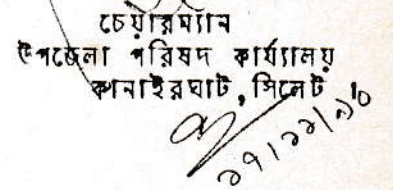 চেয়ারম্যান
উপজেলা পরিষদ কার্য্যালয়
কানাইরঘাট, সিলেট ।